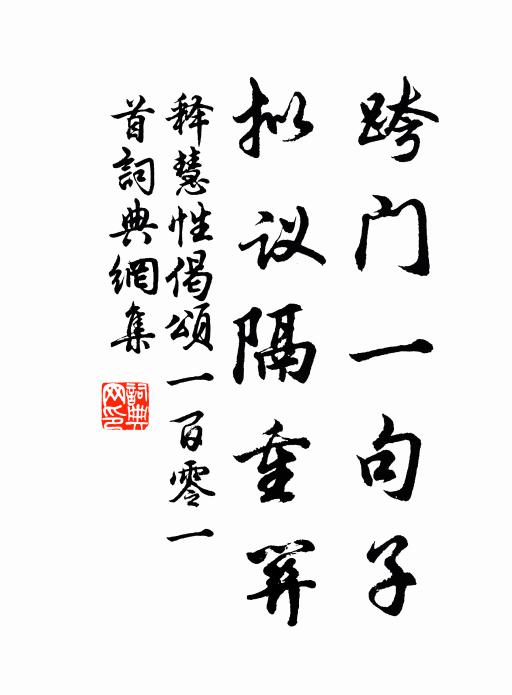 跨门一句子
拟议隔重关
释慧性偈頌一百零一
首詞典網集
詞典网印